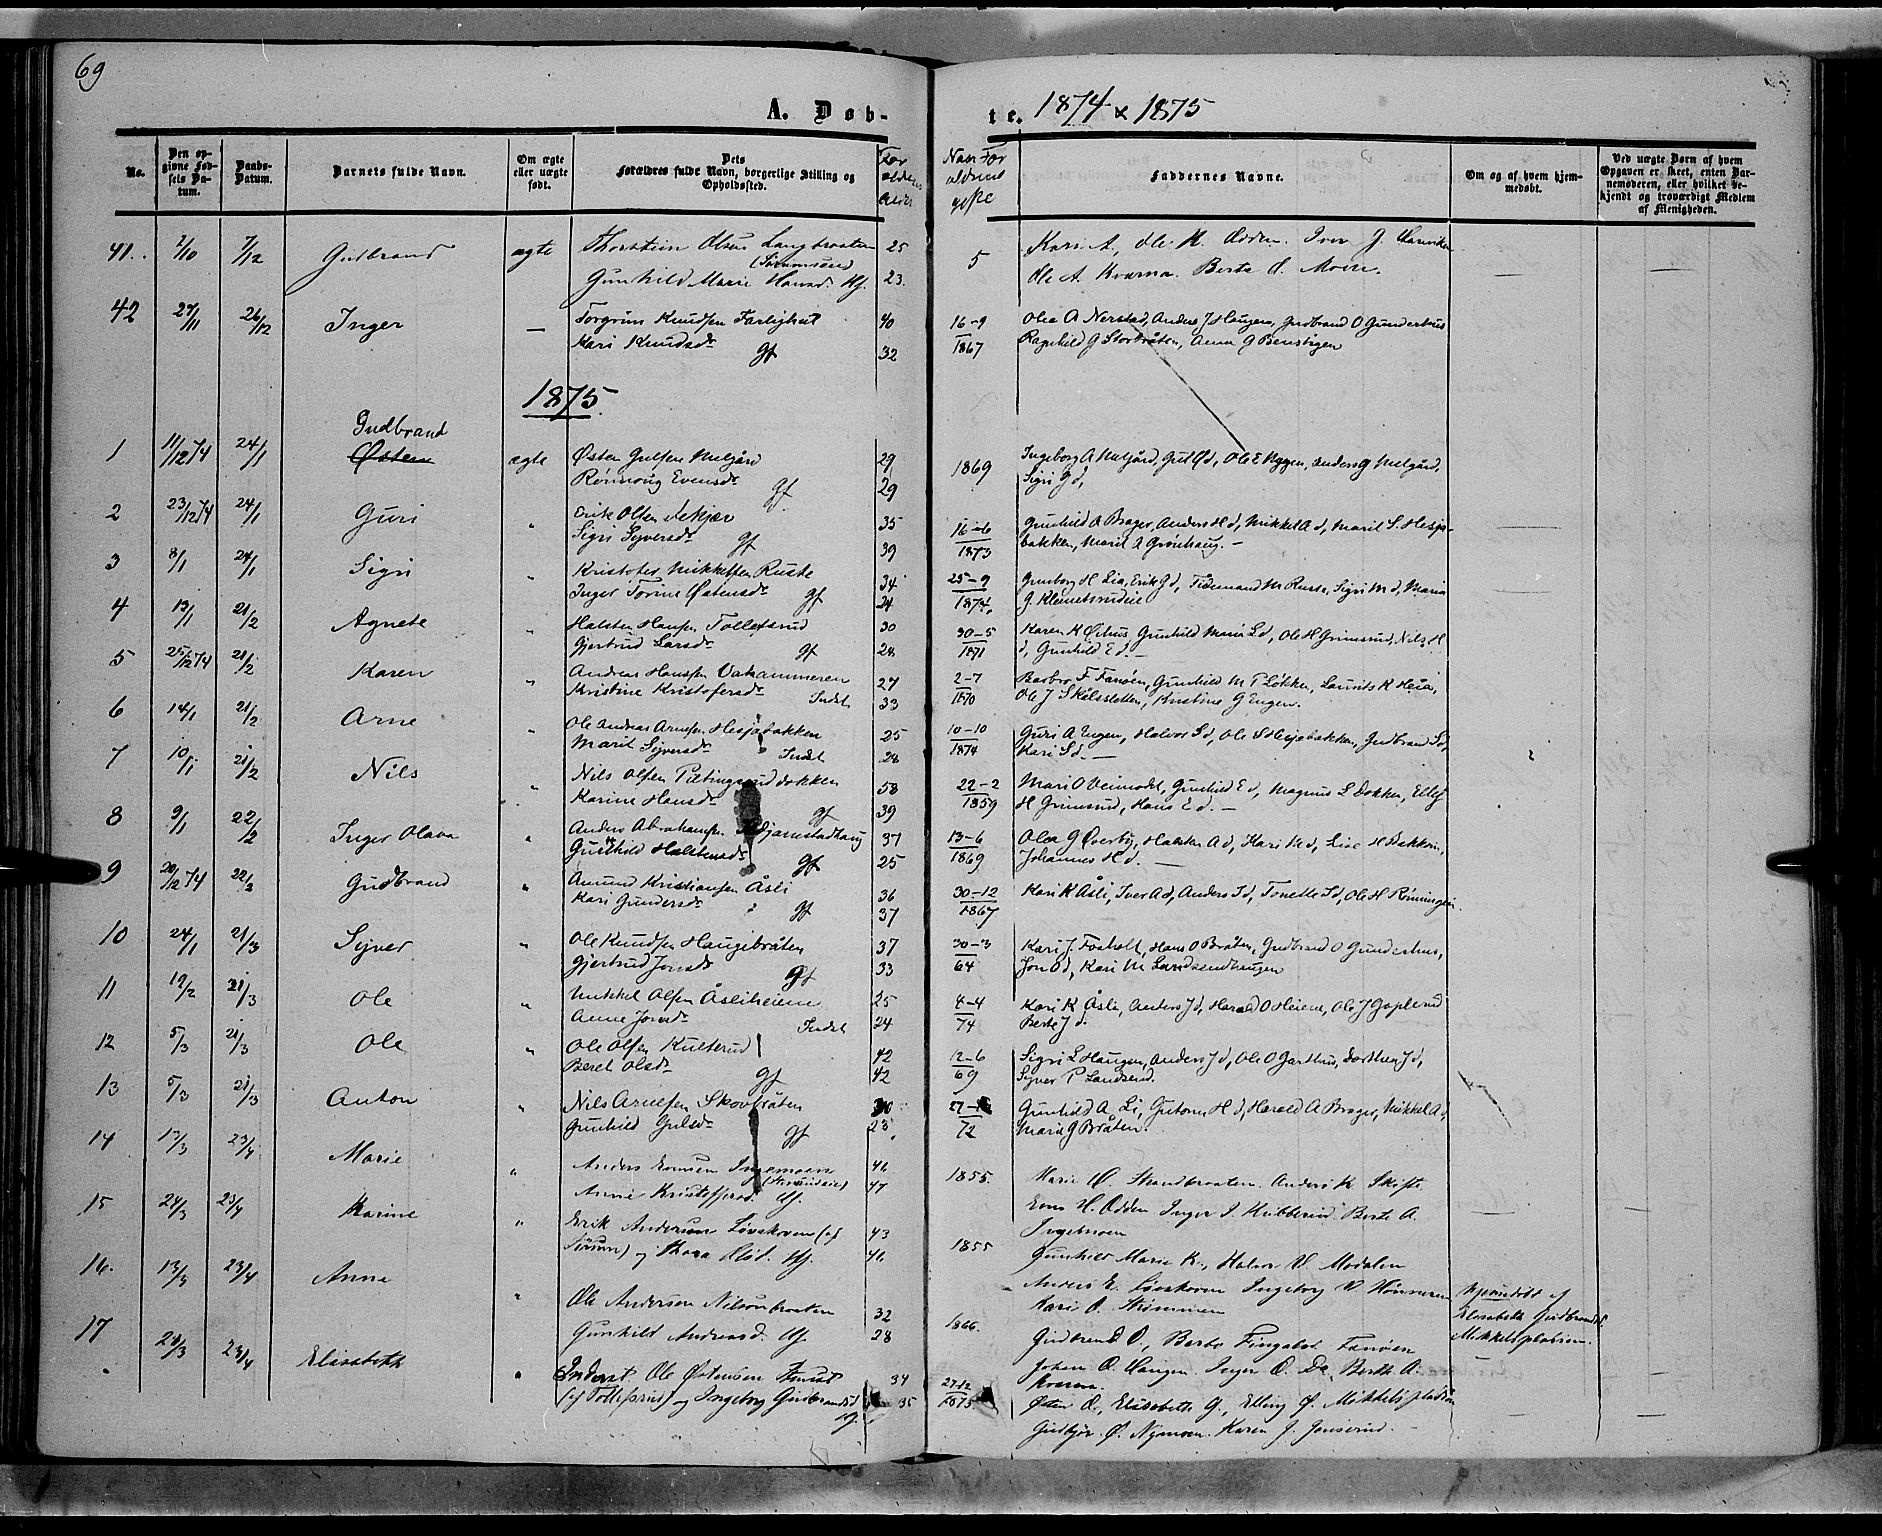 69
A. Døb-
te. 1874 & 1875
No.
Den op-
givne Fød-
sels Da-
tum.
Daabs-
Datum.
Barnets fulde Navn.
Om ægte
eller uægte
født.
Dets
Forældres fulde Navn, borgerlige Stilling og
Opholdssted.
Faddernes Navne.
Om og af hvem hjem-
medøbt.
Ved uægte Børn af hvem
Opgaven er skeet, enten Bar-
nemoderen, eller hvilket be-
kjendt og troværdigt Medlem
af Menigheden.
41. 2/10 7/12 Gudbrand ægte Thorstein Olsen Langbraaten 25
Gunhild Marie Hansd. Gf. 23.
5
Kari A., Ole H. Odden. Iver J.
Ole A. Kværna. Berte O. Moen.
42 27/11 26/12 Inger — Torgrim Knudsen Farlighet 40
Kari Knudsdr gf 32
16-9
1867
Olea A Nerstad, Anders J Haugen, Gudbrand O Gunderhus
Ragnhild G Storbråten, Anna G Benstigen
1875.
Gudbrand
1 11/12 74 24/1 Østen ægte Østen Gulsen Melgård 29
Rønnoug Evensdr gf 29
1869
Ingeborg A Melgård, Gul Ø d, Ole E Nygen, Anders G Melgård,
Sigri G d,
2 23/12 74 24/1 Guri " Erik Olsen 35
Sigri Syversdr gf 39
16-6
1873
Gunhild A Brager, Anders H d, Mikkel A d, Marit S. Hesja-
bakken, Marit A Grønhaug. —
3 8/1 24/1 Sigri " Kristofer Mikkelsen Ruste 34
Inger Torine Østensdr gf 24
25-9
1874,
Gunborg H Lia, Erik G d, Tidemand M Ruste, Sigri M d, Maria
G. Klemetsrudeie
4 13/1 21/2 Agnete " Halsten Hansen Tollefsrud 30
Gjertrud Larsdr gf 28
30-5
1871
Karen K Øihus, Gunhild Marie L d, Ole H Grimsrud, Nils H
d, Gunhild E d. —
5 25/12 74 21/2 Karen " Andreas Hansen Vakammeren 27
Kristine Kristofersdr Indst 33
2-7
1870
Barbro F Fanøen, Gunhild M P Løkke, Laurits K Heia,
Ole J Skålsletten, Kristine G Engen.
6 14/1 21/2 Arne " Ole Andreas Arnesen Hesjabakken 25
Marit Syversdr Indst 28
10-10
1874
Guri A Engen, Halvor S d, Ole S Hesjabakken, Gudbrand S d,
Kari S d. —
7 10/1 21/2 Nils " Nils Olsen Pætingsruddokken 58
Karine Hansdr gf 39
22-2
1859
Mari O Veimodt, Gunhild E d, Magnus L Dokken, Ellef
H Grimsrud, Hans E d. —
8 9/1 22/2 Inger Olava " Anders Abrahamsen 37
Gunhild Halstensdr gf 25
13-6
1869
Olea G Øverby, Halsten A d, Kari H d, Lise H Bakken,
Johannes H d. —
9 20/12 74 22/2 Gudbrand " Amund Kristiansen Åsli 36
Kari Gundersdr gf 37
30-12
1867
Kari K Åsli, Iver A d, Anders I d, Tonette I d, Ole H Rønningen.
10 24/1 21/3 Syver " Ole Knudsen Haugebråten 37
Gjertrud Jonsdr gf 33
30-3
64
Kari J. Fosholt, Hans O Bråten, Gudbrand O Gunderhus,
Jon O d, Kari M Landsendhaugen
11 19/2 21/3 Ole " Mikkel Olsen Åsliheiene 25
Anne Jonsdr Indst 24
4-4
74
Kari K Åsli, Anders J d, Harald O Heiene, Ole J Goplerud
Berte J d.
12 5/3 21/3 Ole " Ole Olsen Kulterud 42
Beret Olsdr gf 42
12-6
69
Sigri L Haugen, Anders J d, Ole O Garthus, Dorthea J d,
Syver P Landsend.
13 5/3 21/3 Anton " Nils Arnesen Skovbråten 30
Gunhild Gulsdr gf 23
72
Gunhild A. Li, Gutorm H d, Harald A Brager, Mikkel A d,
Marie G Bråten.
14 13/3 23/4 Marie " Anders Ensen Ingemoen 46
Anne Kristoffersd. Gf. 47
1855.
Marie O. Strandbraaten. Anders K. Skifte.
Ens H. Odden. Inger I. Kubberud. Berte A.
Ingemoen
15 24/3 23/4 Karine " Erik Andersen Løvskoven (af
Sørum) og Thora Olsd. Gf. 43 46
1855
Gunhild Marie K., Halvor O. Modalen
Anders E. Løvskoven Ingeborg O.
Kari O. Strømmen
16. 13/3 23/4 Anne " Ole Andersen Nilsenbraaten 32
Gunhild Andreasd. Gf. 28
1866.
Gudbrand O., Berbo Fingalsd. Fanøen
Johan O. Haugen. Inger O. Do. Berth A.
Kværna.
Hjemmedøbt af
Elisabeth Gudbrandsd.
Mikkelsplassen.
17 21/3 23/4 Elisabeth " Inderst Ole Østensen 34
(af Tollefsrud) og Ingeborg Gudbrandsd. 35
Gf.
27-12
1873
Østen O., Elisabeth G., Elling O. Mikkelsplassen
Gudbjør O. Nymoen. Karen J. Jonserud. —